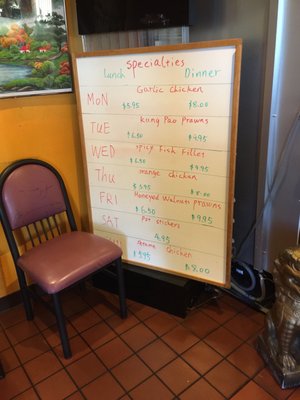 Specialties
Lunch Dinner
MON Garlic Chicken
$5.95 $8.00
TUE Kung Pao Prawns
$6.50 $9.95
WED Spicy Fish Fillet
$6.50 $9.95
THU orange chicken
$5.95 $8.00
FRI Honeyed Walnuts prawns
$6.50 $9.95
SAT Pot stickers
4.95
Sesame Chicken
$5.95 $8.00